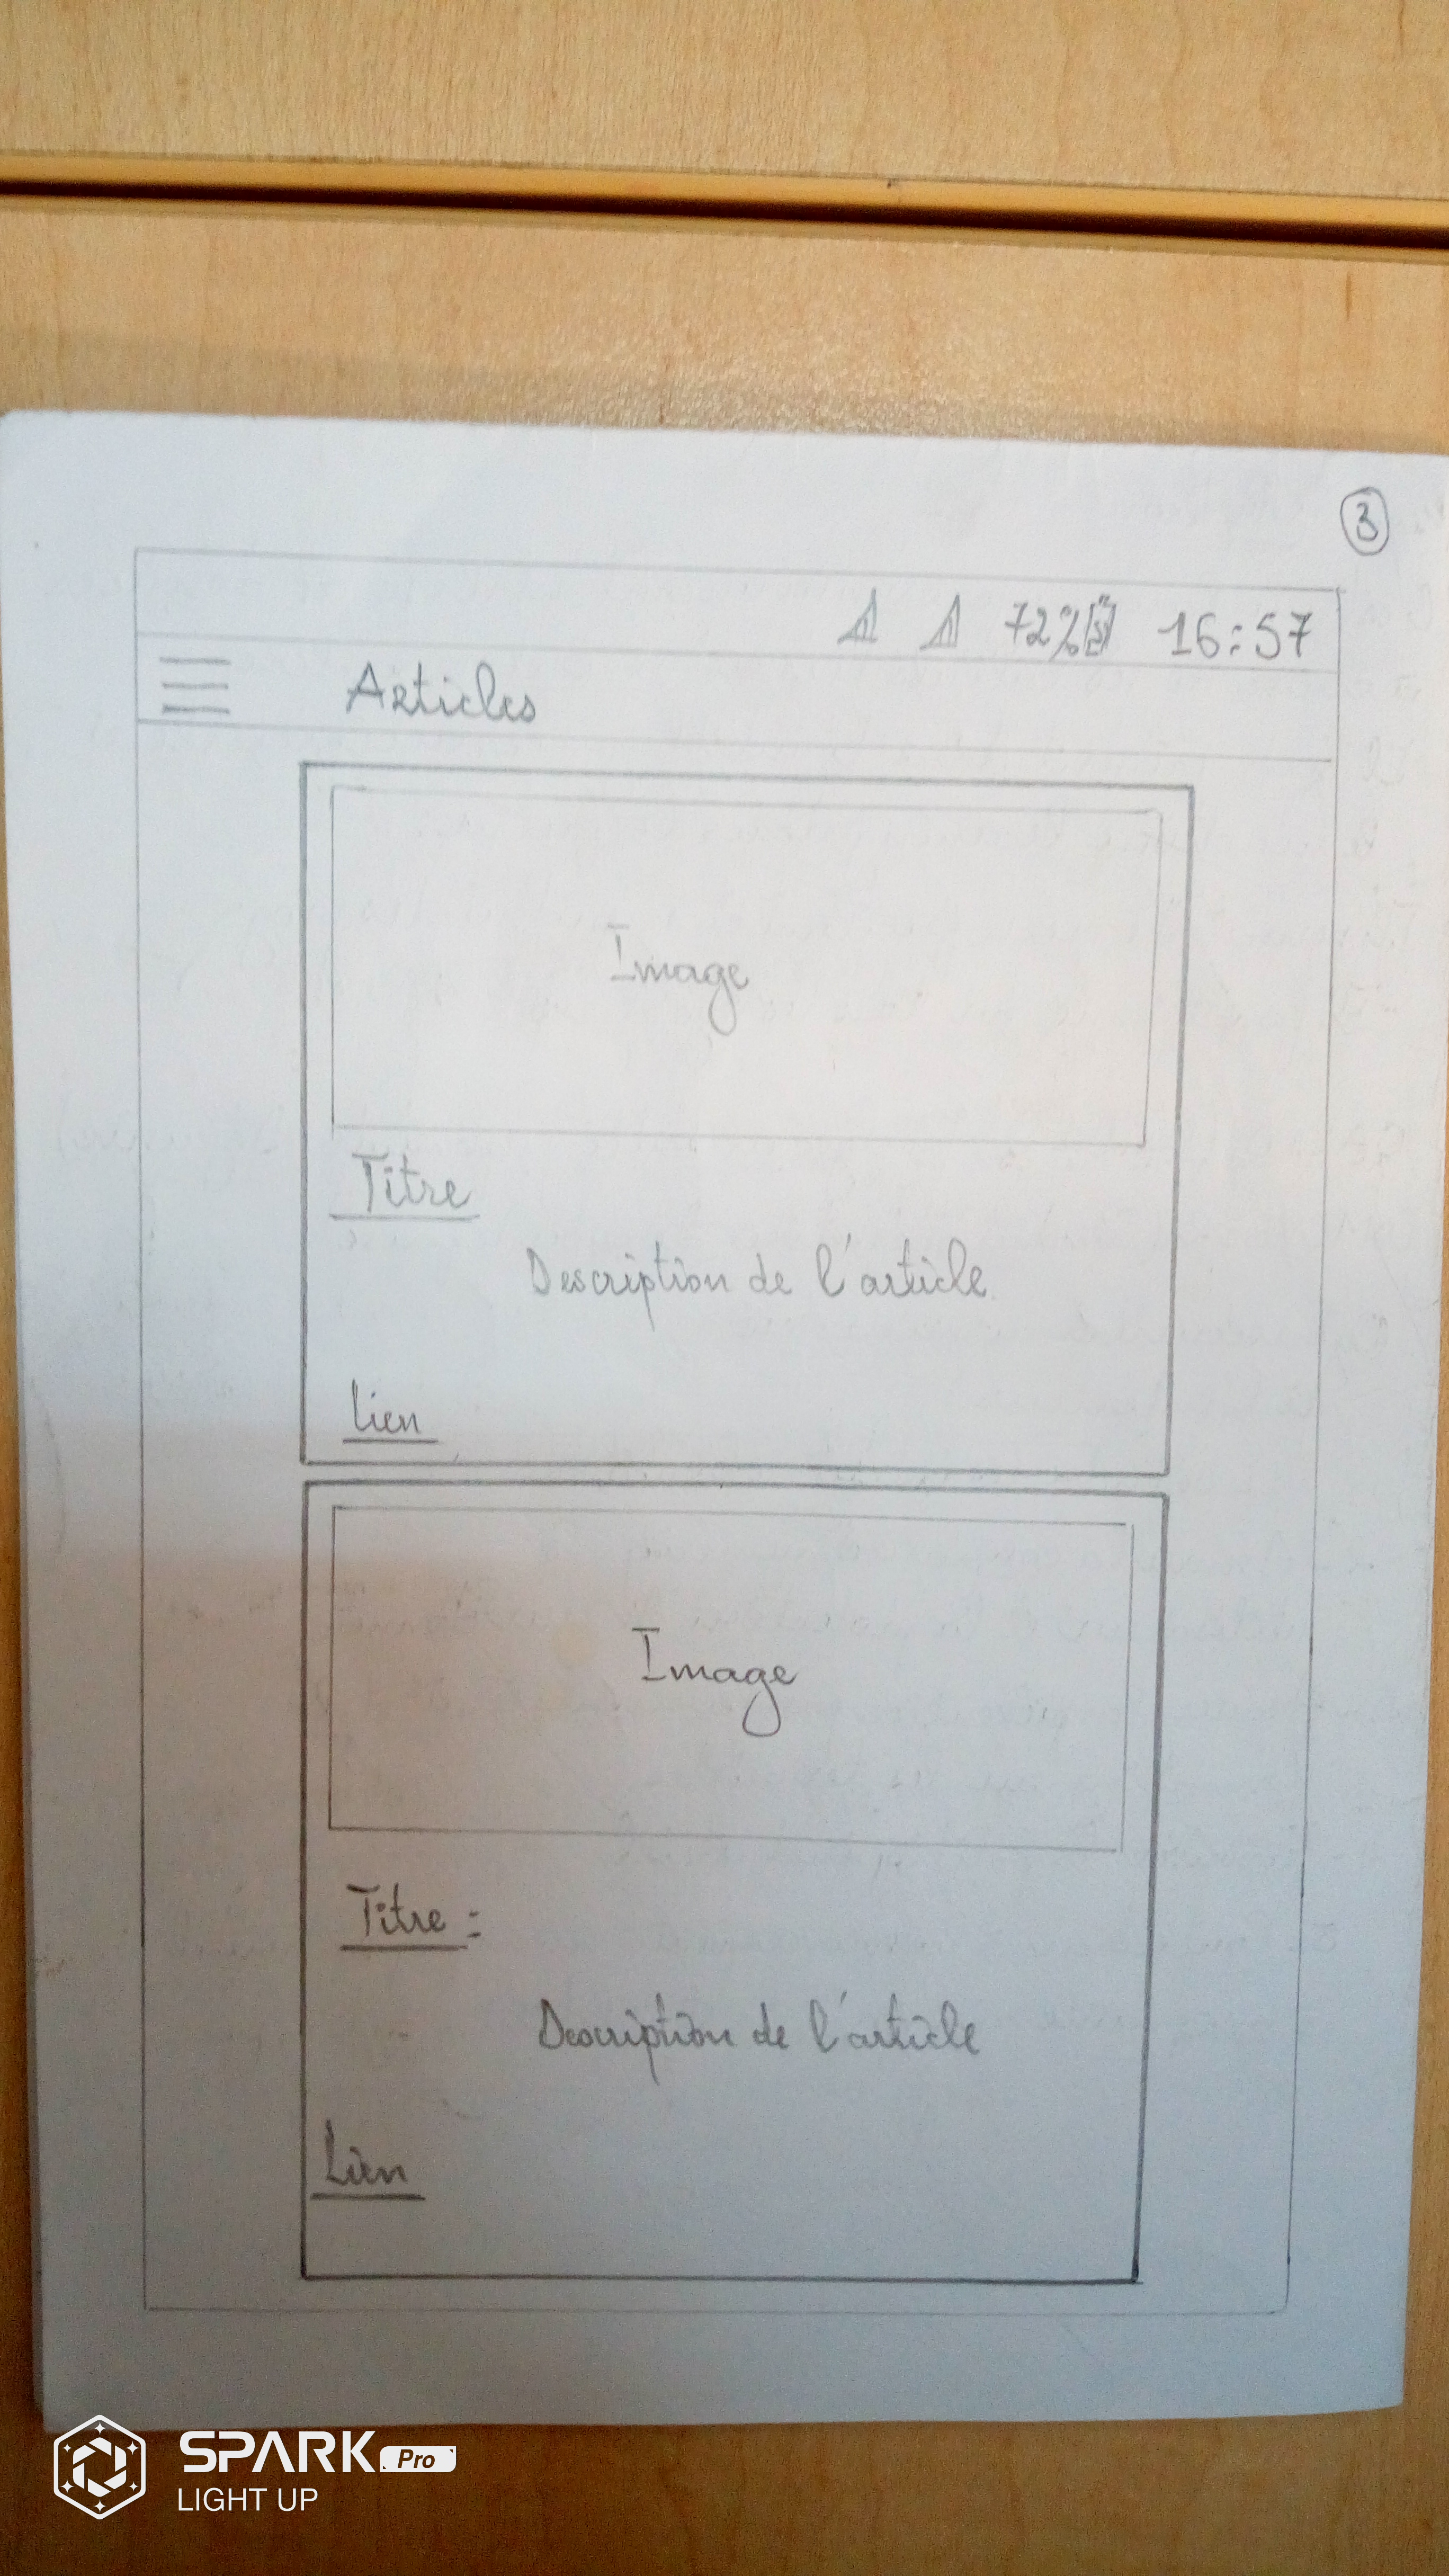 3
72% 16:57
Articles
Image
Titre
Description de l'article
Lien
Image
Titre :
Description de l'article
Lien
SPARK Pro
LIGHT UP